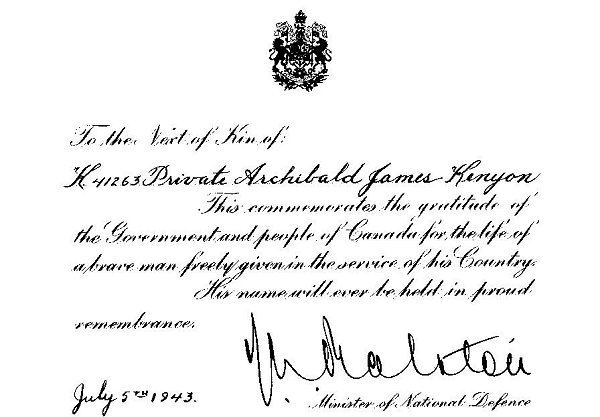 To the Next of Kin of:
K 41263 Private Archibald James Kenyon
This commemorates the gratitude of
the Government and people of Canada for the life of
a brave man freely given in the service of his Country.
His name will ever be held in proud
remembrance.
Ralston
July 5TH 1943.
Minister of National Defence